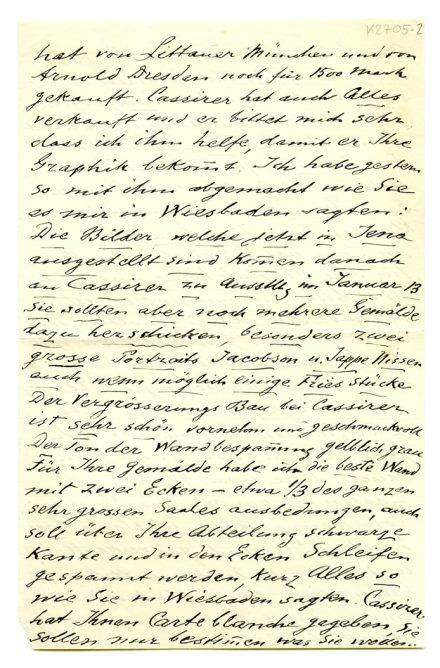 K2705-2
hat von Littauer München und von
Arnold Dresden noch für 1500 Mark
gekauft. Cassirer hat auch Alles
verkauft und er bittet mich sehr
dass ich ihm helfe, damit er Ihre
Graphik bekom̄t. Ich habe gestern
so mit ihm abgemacht wie Sie
es mir in Wiesbaden sagten:
Die Bilder, welche jetzt in Jena
ausgestellt sind kom̄en danach
an Cassirer zu Ausstllg im Januar 13
Sie sollten aber noch mehrere Gemälde
dazu herschicken, besonders zwei
grosse Portraits Jacobson u. Jappe Nissen
auch wenn möglich einige Fries Stücke
Der Vergrösserungs Bau bei Cassirer
ist sehr schön vornehm und geschmackvoll
Der Ton der Wandbespannung gelblich grau
Für Ihre Gemälde habe ich die beste Wand
mit zwei Ecken – etwa 1/3 des ganzen
sehr grossen Saales ausbedungen, auch
soll über Ihre Abteilung schwarze
Kante und in den Ecken Schleifen
gespannt werden, kurz Alles so
wie Sie in Wiesbaden sagten. Cassirer
hat Ihnen Carte blanche gegeben, Sie
sollen nur bestim̄en was Sie wollen.